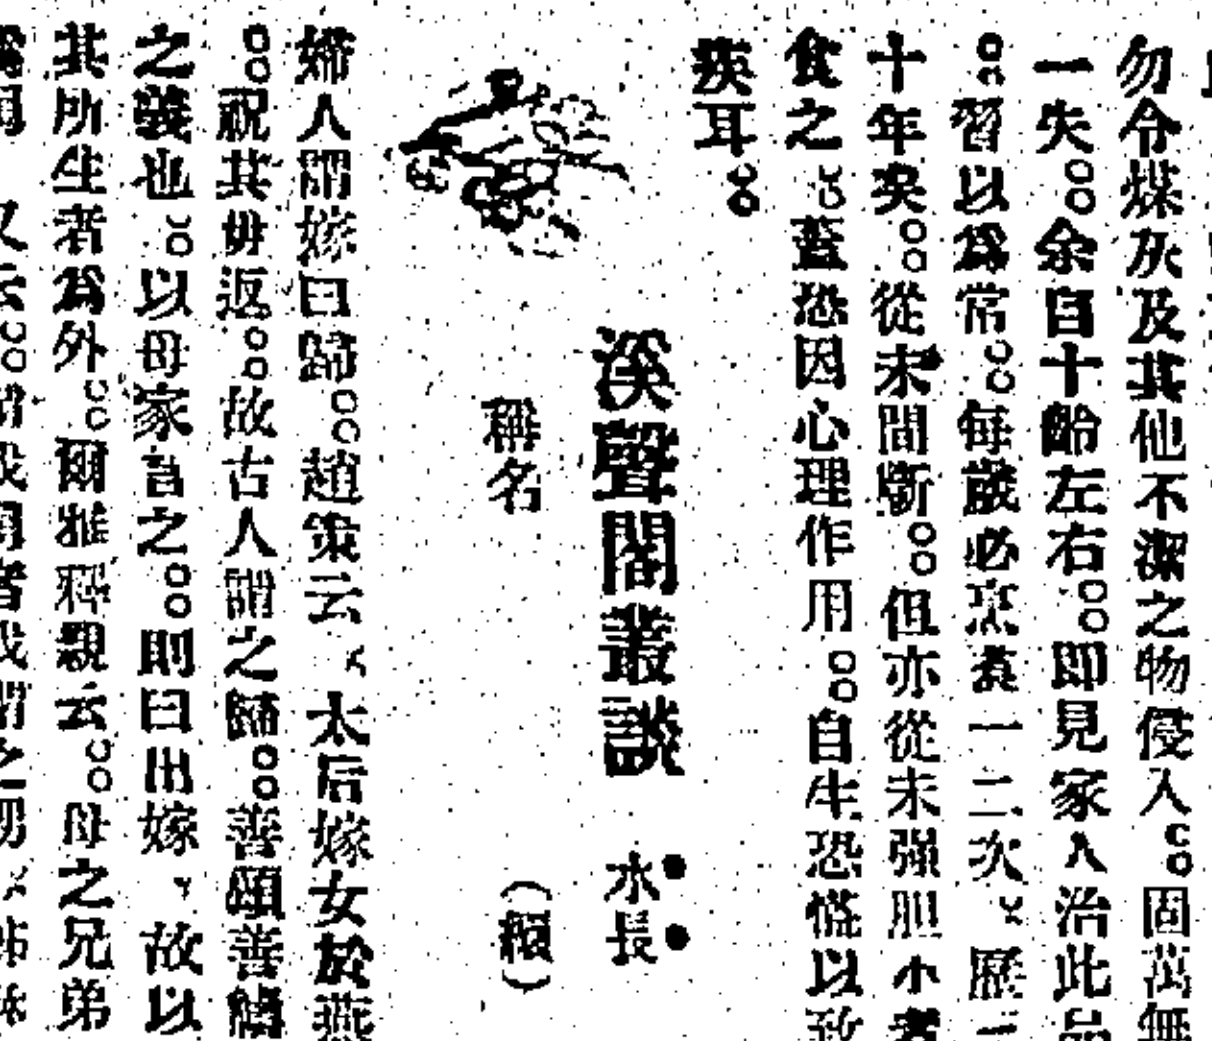 勿令煤灰及其他不潔之物侵入。固萬無
一失。余自十齡左右。即見家人治此品
。習以爲常。每歲必烹煮一二次、歷二
十年矣。從未間斷。但亦從未强胆小者
食之、蓋恐因心理作用。自生恐慌以致
疾耳。
溪聲閣叢談 水長
稱名 （續）
婦人謂嫁曰歸。趙策云、太后嫁女於燕
。祝其毋返。故古人謂之歸。善頌善禱
之義也、以母家言之。則曰出嫁、故以
其所生者爲外。爾雅釋親云。母之兄弟